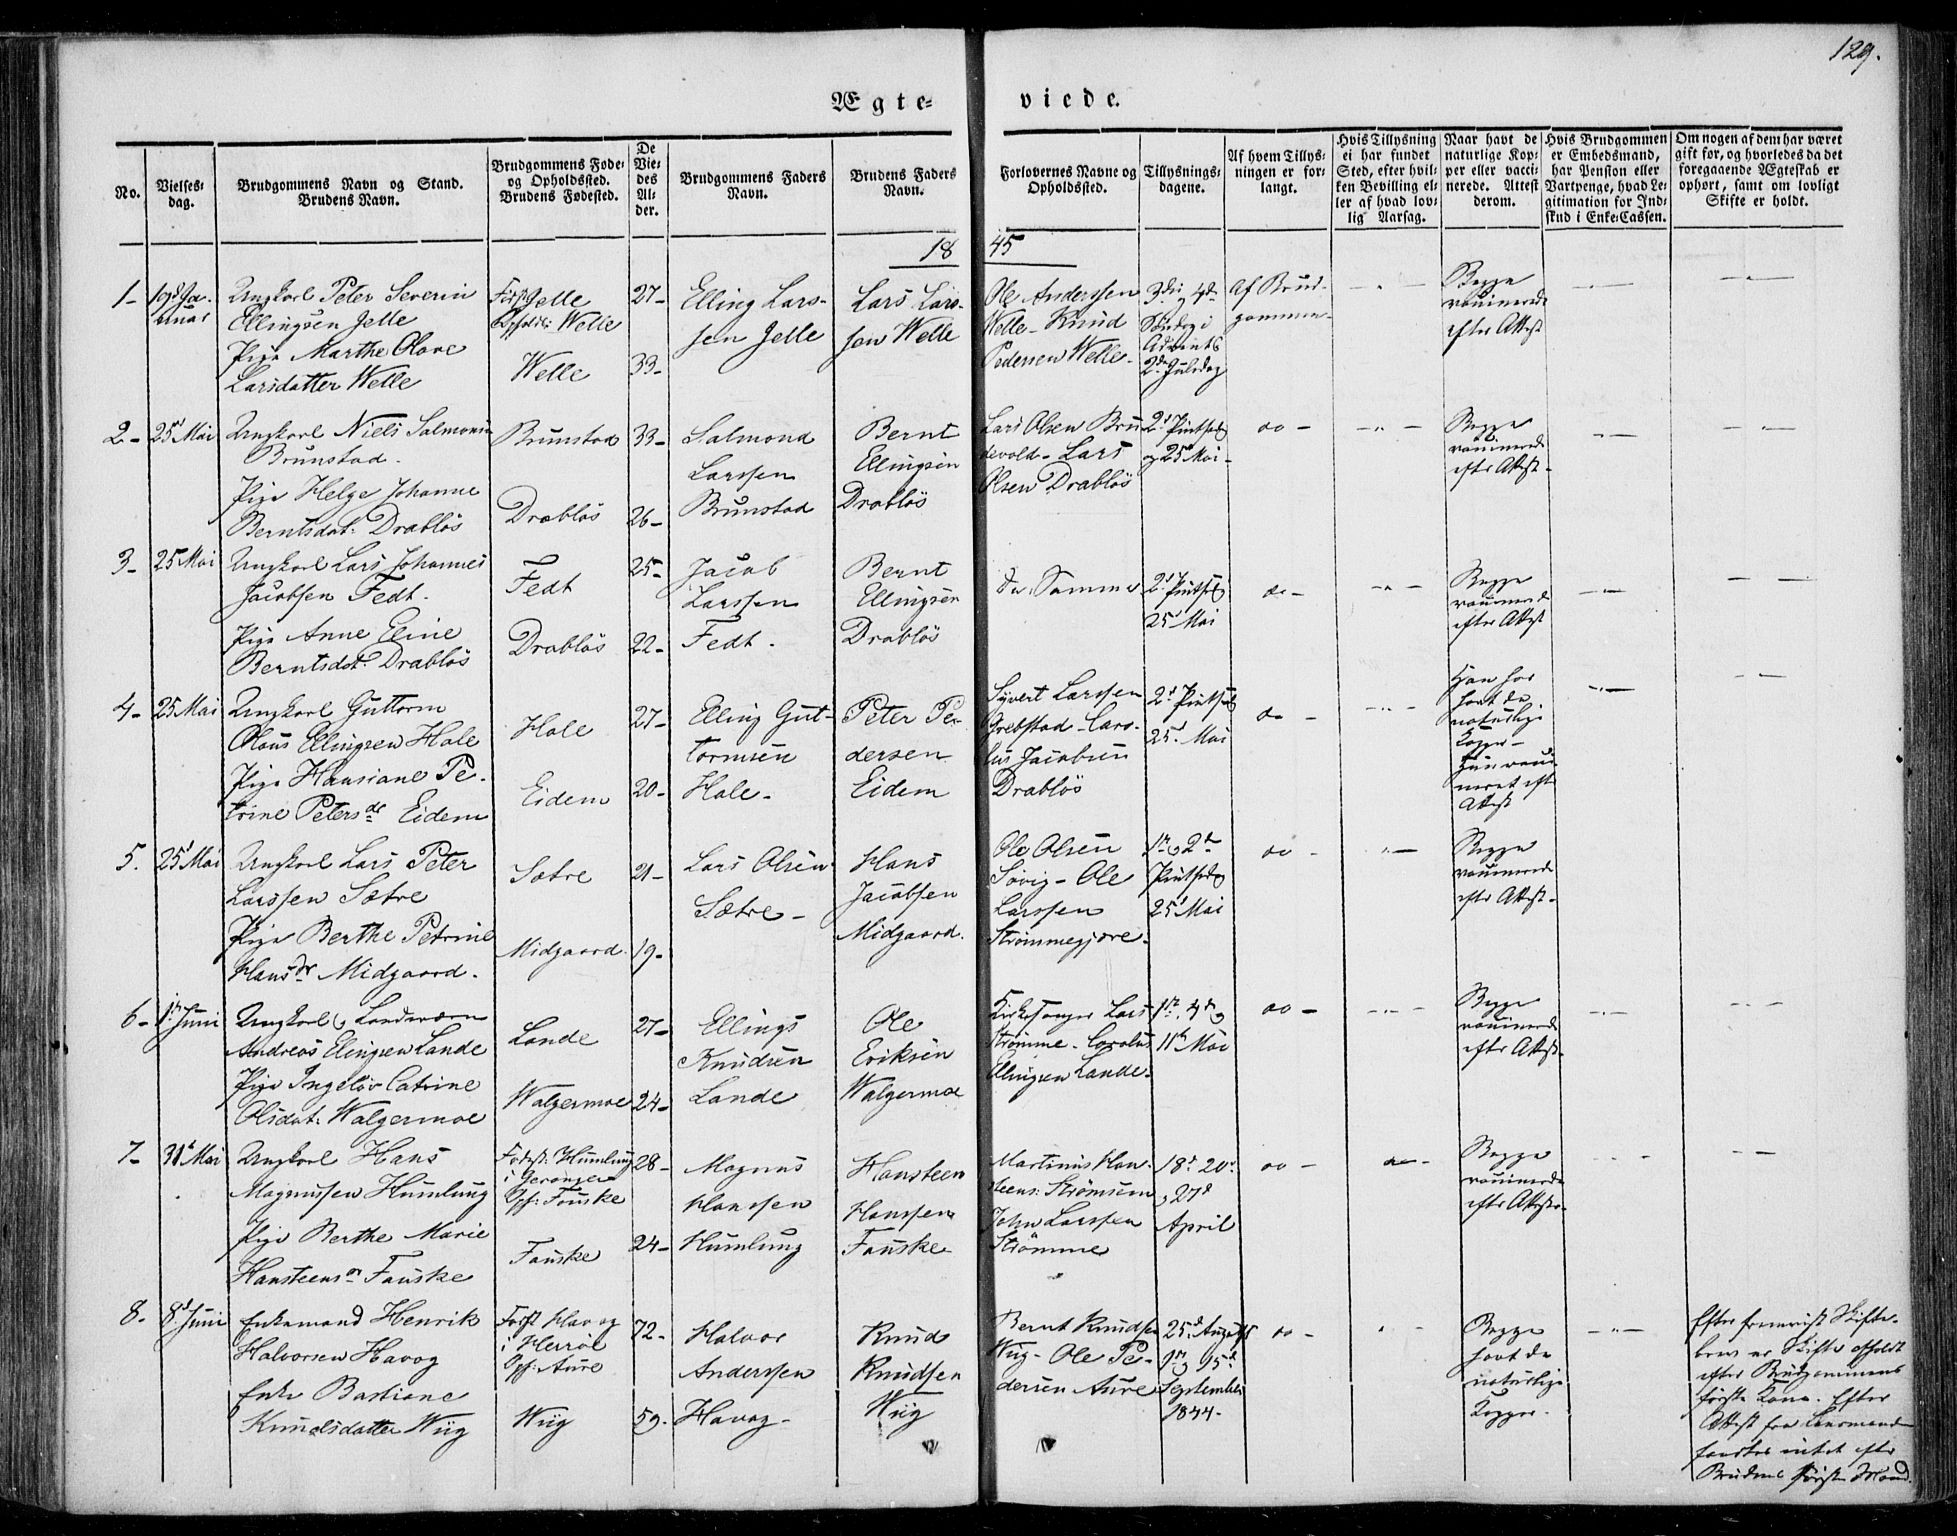 129.
Ægte-
viede.
No.
Vielses-
dag.
Brudgommens Navn og Stand.
Brudens Navn.
Brudgommens Føde-
og Opholdssted.
Brudens Fødested.
De
Vie-
des
Al-
der.
Brudgommens Faders
Navn.
Brudens Faders
Navn.
Forlovernes Navne og
Opholdssted.
Tillysnings-
dagene.
Af hvem Tillys-
ningen er for-
langt.
Hvis Tillysning
ei har fundet
Sted, efter hvil-
ken Bevilling el-
ler af hvad lov-
lig Aarsag.
Naar havt de
naturlige Kop-
per eller vacci-
nerede. Attest
derom.
Hvis Brudgommen
er Embedsmand,
har Pension eller
Vartpenge, hvad Le-
gitimation for Ind-
skud i Enke-Cassen.
Om nogen af dem har været
gift før, og hvorledes da det
foregaaende Ægteskab er
ophørt, samt om lovligt
Skifte er holdt.
1845
1-
19de Ja-
nuar
Ungkarl Peter Severin
Ellingsen Jelle
Pige Marthe Olave
Larsdatter Welle
Jelle
Welle
Welle
27-
33-
Elling Lars-
sen Jelle
Lars Lars-
sen Welle
Ole Anderssen
Welle - Knud
Pedersen Welle-
3die 4de
Søndag i
Advent &
2den Juledag
Af Brud-
gommen-
Begge
vacinerede
efter Attest
2-
25d Mai
Ungkarl Niels Salmonsen
Brunstad-
Pige Helge Johanne
Berntsdat: Drabløs
Brunstad
Drabløs
33-
26-
Salmond
Larssen
Brunstad
Bernt
Ellingsen
Drabløs
Lars Olsen Bru
devold - Lars
Olsen Drabløs
2d Pintsed
og 25d Mai-
do -
Begge
vacinerede
efter Attest-
3-
25 Mai
Ungkarl Lars Johannes
Jacobsen Fedt-
Pige Anne Eline
Berntsdat: Drabløs
Fedt
Drabløs
25-
22-
Jacob
Larssen
Fedt-
Bernt
Ellingsen
Drabløs
De Samme
2d Pintsed
25d Mai
do -
Begge
vacinerede
efter Attest
4-
25 Mai
Ungkarl Guttorm
Olaus Ellingsen Hole
Pige Hansiane Pe-
trine Petersdr Eidem
Hole
Eidem
27-
20-
Elling Gut-
tormsen
Hole-
Peter Pe-
dersen
Eidem
Syvert Larssen
Grebstad - Caro-
lus Jacobsen
Drabløs
2d Pintsed
25. Mai
do -
Han har
havt de
naturlige
Kopper-
Hun vaci-
neret efter
Attest
5.
25d Mai
Ungkarl Lars Peter
Larssen Sætre
Pige Berthe Petrine
Hansdr Midgaard-
Sætre
Midgaard-
21-
19-
Lars Olsen
Sætre-
Hans
Jacobsen
Midgaard.
Ole Olsen
Søvig - Ole
Larssen
Strømmegjære-
1ste & 2den
Pintsedag
25d Mai
do -
Begge
vacinerede
efter Attest-
6-
1ste Juni
Ungkarl & Landværn
Andreas Elingsen Lande
Pige Ingeløv Catrine
Olsdat: Walgermoe
Lande
Walgermoe
27-
24-
Ellings
Knudsen
Lande
Ole
Eriksen
Walgermoe
Kirkesanger Lars
Strømme - Carolus
Ellingsen Lande-
1ste, 4de &
11te Mai
do -
Begge
vacinerede
efter Attest-
7-
31d Mai
Ungkarl Hans
Magnussen Humlung
Pige Berthe Marie
Hansteensdr Fauske
Fødest: Humlung
i Geranger
Opf: Fauske
Fauske
28-
24-
Magnus
Hanssen
Humlung
Hansteen
Hanssen
Fauske-
Martinus Han-
steens: Strømsem
John Larssen
Strømme
18d 20d
& 27d
April
do -
Begge
vacinerede
efter Attest-
8-
8d Juni
Enkemand Henrik
Halvorsen Havog
Enke Bastiane
Knudsdatter Wiig
Født Havog
i Herröe
Opf: Aure
Wiig
72-
59-
Halvor
Anderssen
Havog-
Knud
Knudsen
Wiig
Bernt Knudsen
Wiig - Ole Pe-
dersen Aure
25d August
1ste & 15d
September
1844-
do -
Begge
havt de
naturlige
Kopper-
Efter fremviist Skifte-
brev er Skifte afholdt
efter Brudgommens
første Kone. Efter
Attest fra Lensmanden
fandtes intet efter
Brudens første Mand.